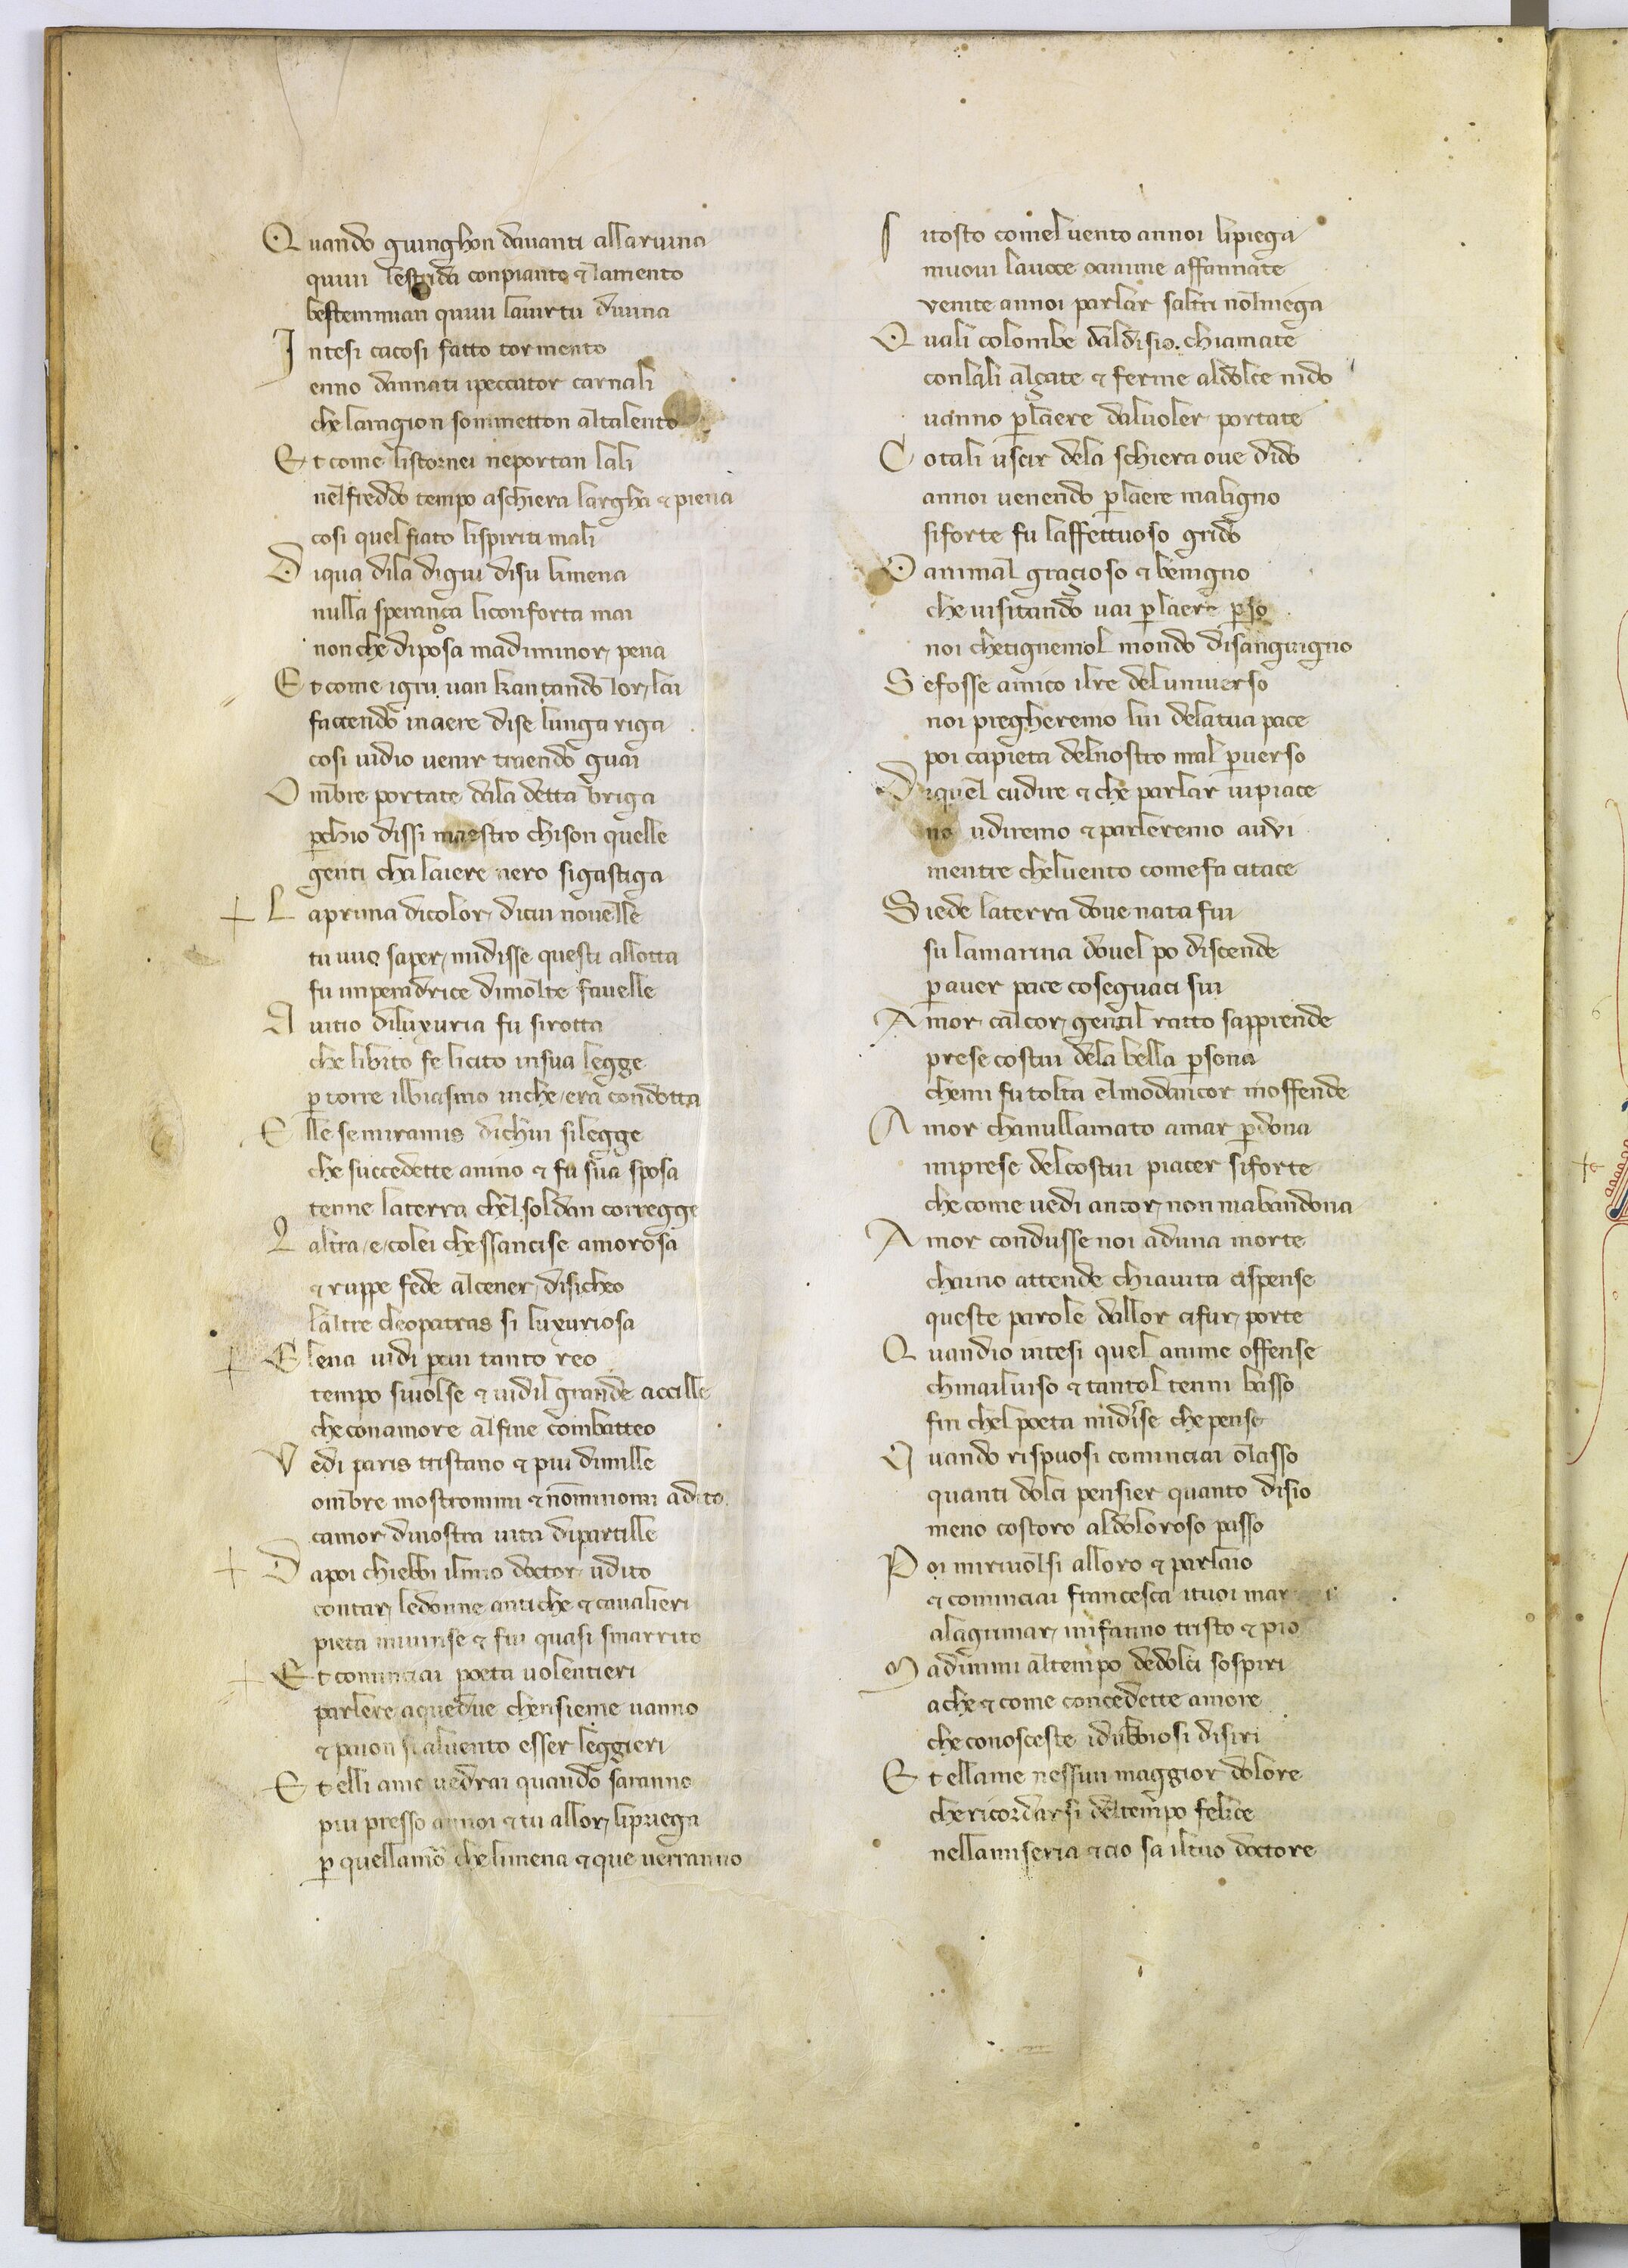 Quando guinghon dauanti allaruina
quiui lestrida conpianto & lamento
bestemmian quiui lauirtu diuina
Intesi cacosi fatto tormento
enno dannati ipeccator carnali
che laragion sommetton altalento
Et come listornei neportan lali
nelfreddo tempo aschiera largha & piena
cosi quel fiato lispiriti mali
Diqua dila digiu disu limena
nulla sperança liconforta mai
non che diposa madiminor pena
Et come igru uan kantando lor lai
faccendo inaere dise lunga riga
cosi uidio uenir traendo guai
Ombre portate dala detta briga
perchio dissi maestro chison quelle
genti cha laiere nero sigastiga
Laprima dicolor dicui nouelle
tu uuo saper midisse questi allotta
fu imperadrice dimolte fauelle
Auitio diluxuria fu sirotta
che libito fe licito insua legge
per torre ilbiasmo inche era condotta
Elle semiramis dichui silegge
che succedette anino & fu sua sposa
tenne laterra chel soldan corregge
Laltra e colei chessancise amorosa
& ruppe fede alcener disicheo
laltre cleopatras si luxuriosa
Elena uidi percui tanto reo
tempo siuolse & uidil grande accille
che conamore alfine combatteo
Vedi paris tristano & piu dimille
ombre mostrommi & nomminomi adito
camor dinostra uita dipartille
Dapoi chiebbi ilmio doctor udito
contar ledonne antiche & caualieri
pieta miuinse & fui quasi smarrito
Et cominciai poeta uolentieri
parlere aquedue chensieme uanno
& paion si aluento esser leggieri
Et elli ame uedrai quando saranno
piu presso annoi & tu allor lipriega
per quellamor chelimena & que uerranno
Sitosto comel uento annoi lipiega
muoui lauoce oanime affannate
venite annoi parlar saltri nolniega
Quali colombe daldisio chiamate
conlali alçate & ferme aldolce nido
uanno perlaere daluoler portate
Cotali uscir dela schiera oue dido
annoi uenendo perlaere maligno
siforte fu laffettuoso grido
O animal gracioso & benigno
che uisitando uai perlaere perso
noi chetignemol mondo disanguigno
Se fosse amico ilre deluniuerso
noi pregheremo lui delatua pace
poi capieta delnostro mal peruerso
Diquel cudire & che parlar uipiace
noi udiremo & parleremo auvi
mentre cheluento comefa citace
Siede laterra doue nata fui
su lamarina douel po discende
per auer pace coseguaci sui
Amor calcor gentil ratto sapprende
prese costui dela bella persona
chemi fu tolta elmodancor moffende
Amor chanullamato amar perdona
mprese delcostui piacer siforte
che come uedi ancor non mabandona
Amor condusse noi aduna morte
chaino attende chiauita cispense
queste parole dallor cifur porte
Quandio intesi quel anime offense
chinailuiso & tantol tenni basso
fin chel poeta midise chepense
Quando rispuosi cominciai olasso
quanti dolci pensier quanto disio
meno costoro aldoloroso passo
Poi miriuolsi alloro & parlaio
& cominciai francesca ituoi martiri
alagrimar mifanno tristo & pio
Madimmi altempo dedolci sospiri
ache & come concedette amore
che conosceste idubbiosi disiri
Et ellame nessun maggior dolore
che ricordarsi deltempo felice
nellamiseria & cio sa iltuo doctore